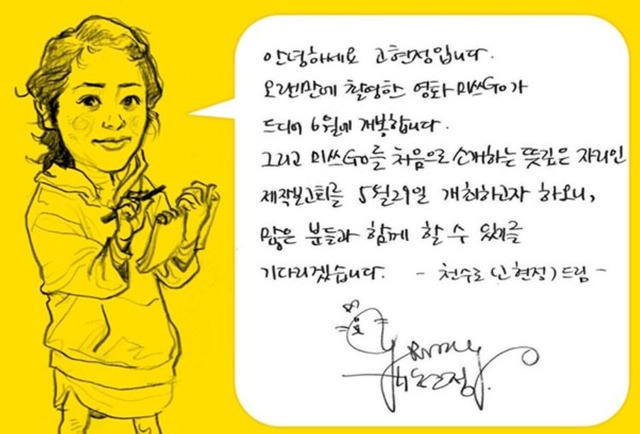 안녕하세요 고현정입니다.
오랜만에 촬영한 영화 미쓰Go가
드디어 6월에 개봉합니다.
그리고 미쓰Go를 처음으로 소개하는 뜻깊은 자리인
제작보고회를 5월29일 개최하고자 하오니,
많은 분들과 함께 할 수 있기를
기다리겠습니다. - 천수로(고현정)드림 -
고현정